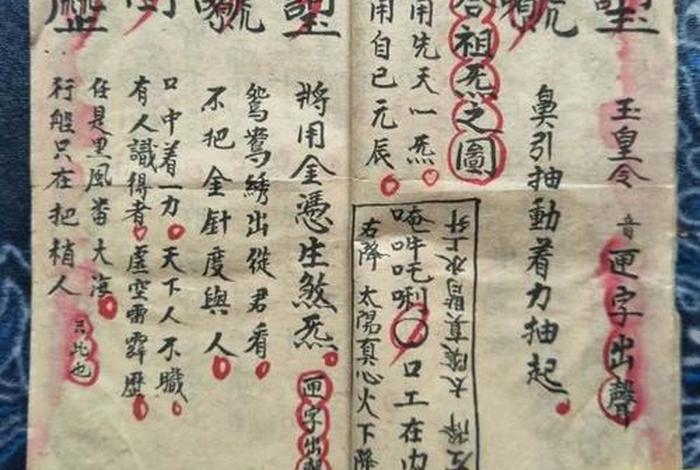 玉皇令 音 匣字出聲
鼻引抽動着力抽起
合祖炁之圖
用先天一炁
用自已元辰
左降 太陰真腎水上升
唵吽吒唎〇口工在内
右降 太陽真心火下降
將用金憑生煞炁 匣字出聲
鴛鴦綉出從君看
不把金針度與人
口中着一力天下人不職
有人識得者虛空雷霹歷
任是黑風當大海
行船只在把梢人 只此也